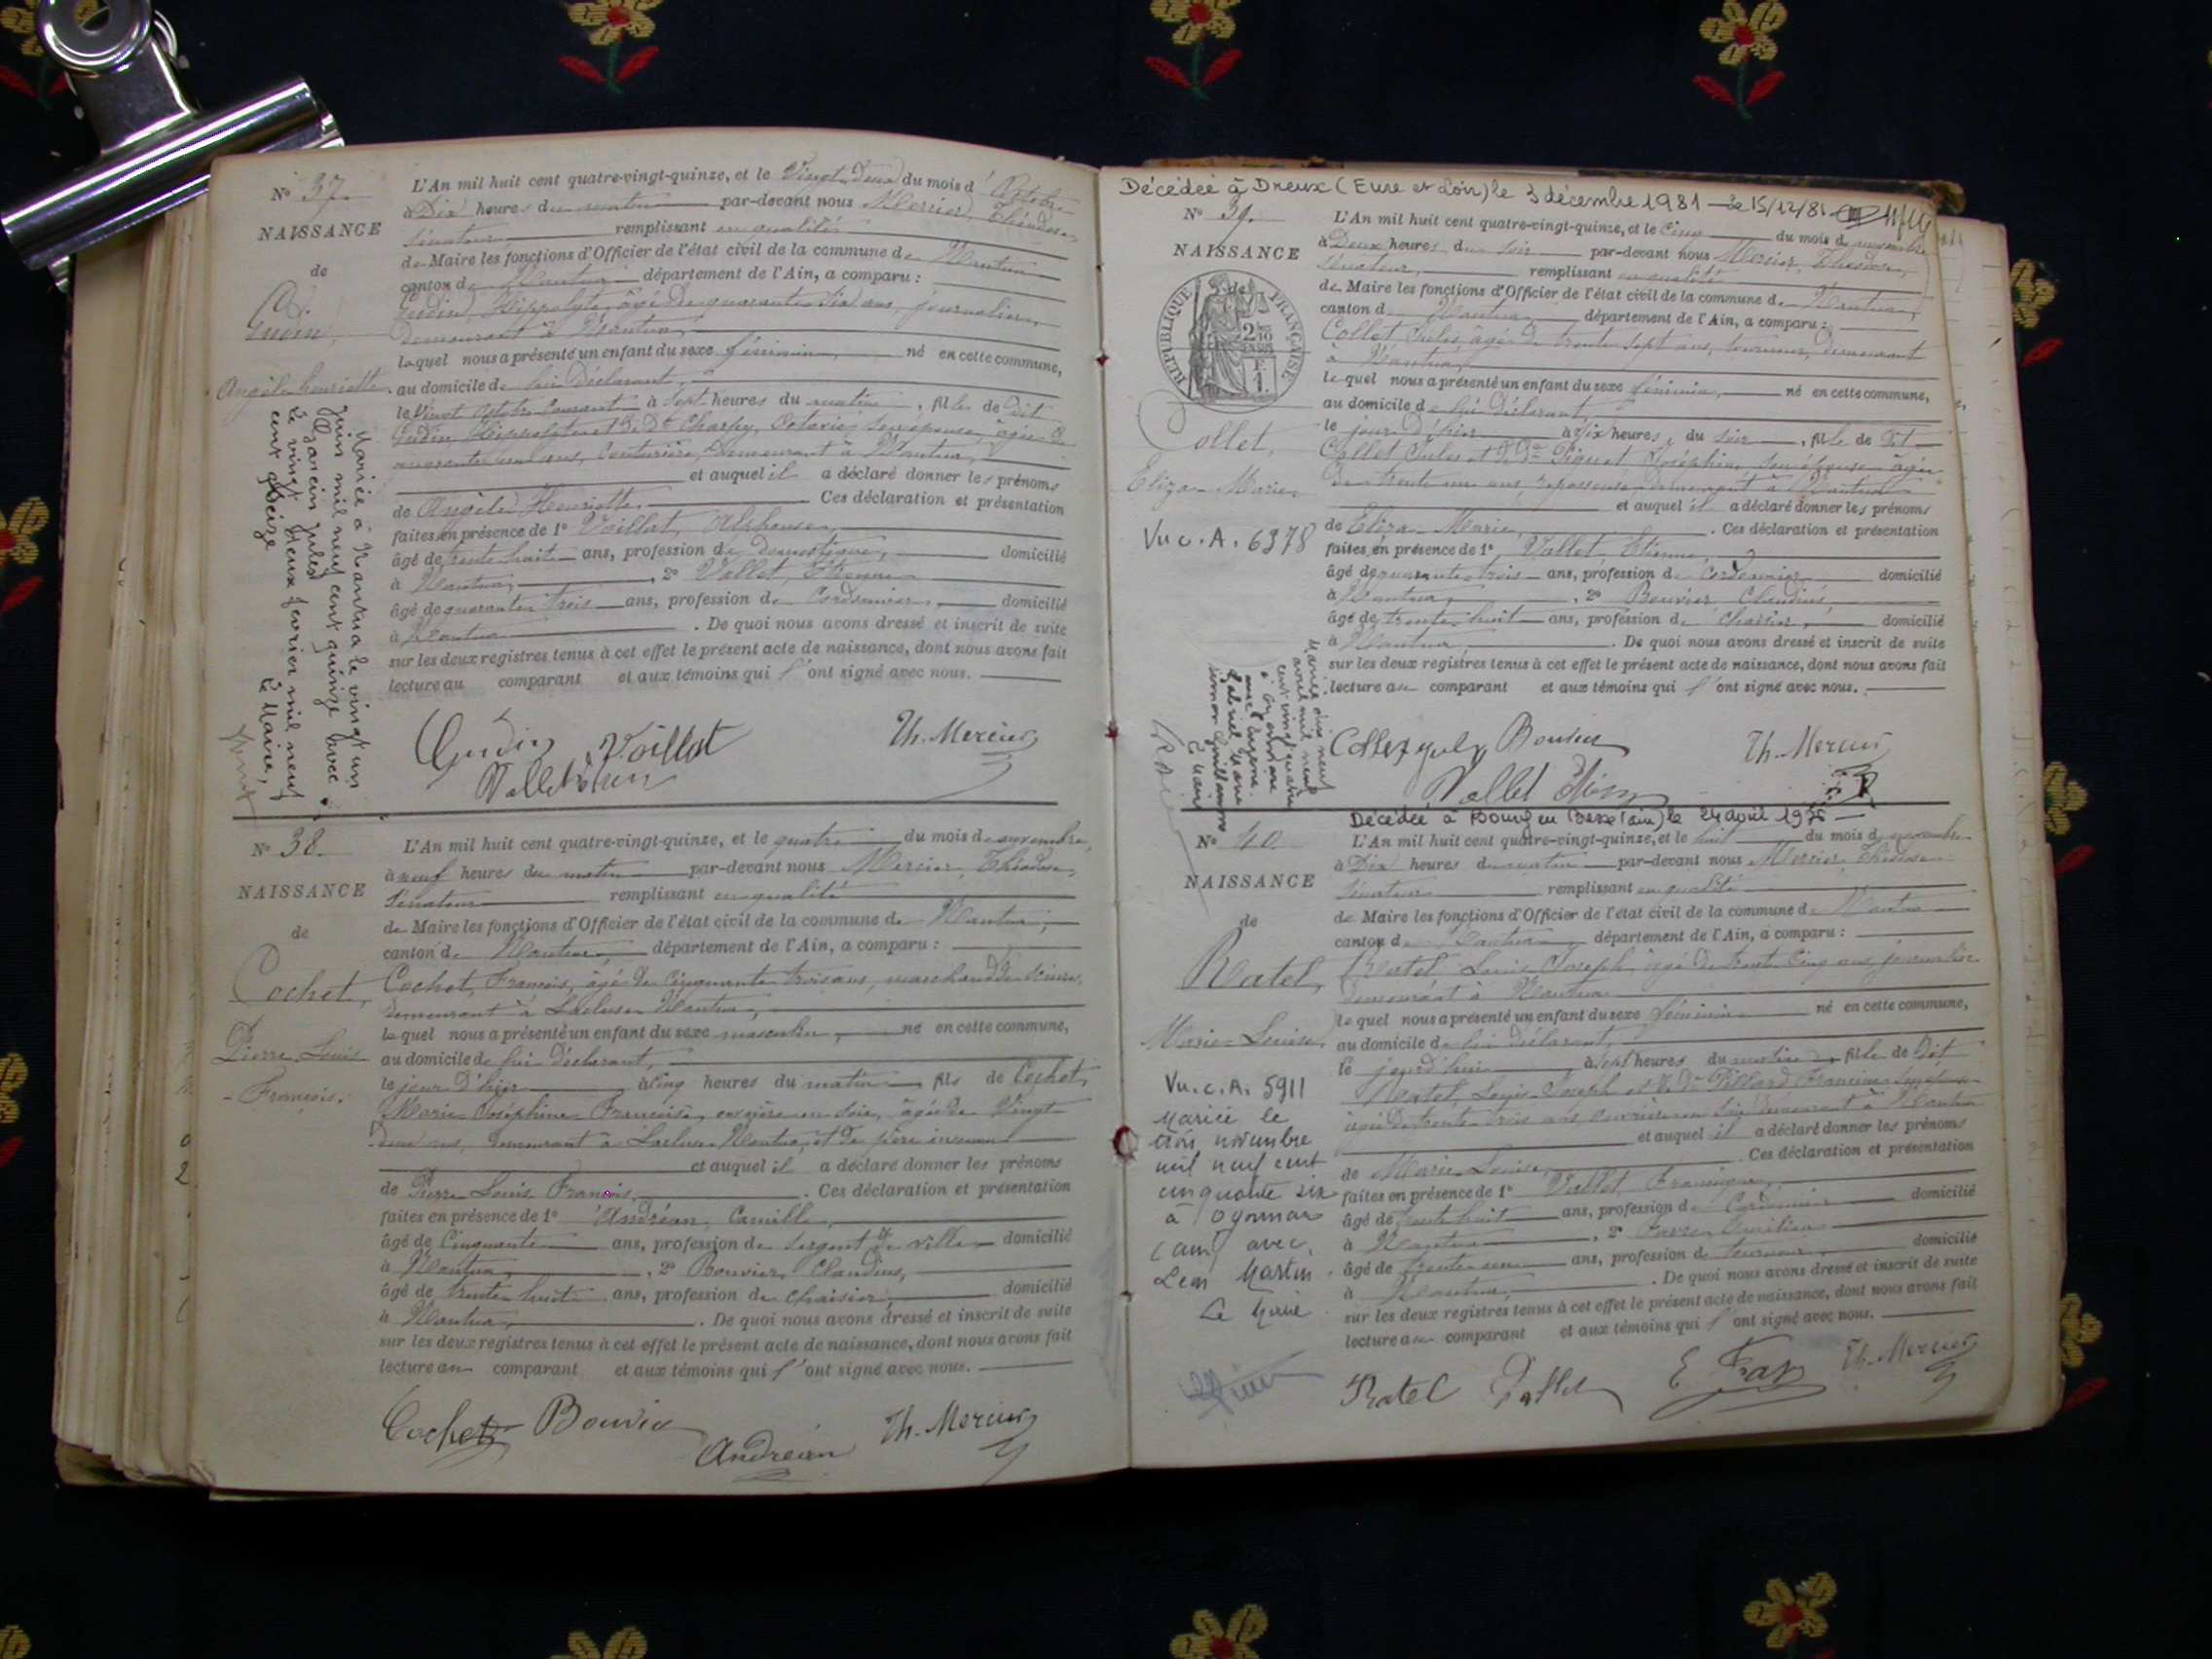 N° 37.
NAISSANCE
de
Gudin,
Angèle Henriette.
L'An mil huit cent quatre-vingt-quinze, et le Vingt Deux du mois d'Octobre
à Dix heures du matin par-devant nous Mercier, Théodore,
Sénateur remplissant en qualité
de Maire les fonctions d'Officier de l'état civil de la commune de Nantua
canton de Nantua département de l'Ain, a comparu :
Gudin, Hippolyte, âgé de quarante six ans, journalier,
demeurant à Nantua,
lequel nous a présenté un enfant du sexe féminin, né en cette commune,
au domicile de lui déclarant,
le Vingt Octobre Courant à Sept heures du matin, fille de Dit
Gudin, Hippolyte et de De Charpy, Octavie, son épouse, âgée de
quarante ans, Couturière, Demeurant à Nantua,
et auquel il a déclaré donner les prénoms
de Angèle Henriette. Ces déclaration et présentation
faites en présence de 1° Voillat, Alphonse,
âgé de trente huit ans, profession de domestique, domicilié
à Nantua, 2° Vallet, Etienne
âgé de quarante trois ans, profession de Cordonnier, domicilié
à Nantua. De quoi nous avons dressé et inscrit de suite
sur les deux registres tenus à cet effet le présent acte de naissance, dont nous avons fait
lecture au comparant et aux témoins qui l'ont signé avec nous.
Mariée à Nantua le vingt un
juin mil neuf cent quinze avec
Garcin Jules
Le vingt deux février mil neuf
cent seize
Le Maire,
Gudin Voillat Th. Mercier
Vallet Etienne
N° 38.
NAISSANCE
de
Cochet,
Pierre Louis
François.
L'An mil huit cent quatre-vingt-quinze, et le quatre du mois de novembre,
à neuf heures du matin par-devant nous Mercier, Théodore,
Sénateur remplissant en qualité
de Maire les fonctions d'Officier de l'état civil de la commune de Nantua,
canton de Nantua, département de l'Ain, a comparu :
Cochet, François, âgé de Cinquante trois ans, marchand de
demeurant à Lacluse Nantua,
lequel nous a présenté un enfant du sexe masculin, né en cette commune,
au domicile de lui déclarant,
le jour d'hier à cinq heures du matin fils de Cochet,
Marie Joséphine Françoise, ouvrière en soie, âgée de Vingt
deux ans, demeurant à Lacluse Nantua, et de père inconnu
et auquel il a déclaré donner les prénoms
de Pierre Louis François. Ces déclaration et présentation
faites en présence de 1° Andréan, Camille,
âgé de Cinquante ans, profession de Sergent de ville domicilié
à Nantua, 2° Bouvier, Claudius,
âgé de trente huit ans, profession de chaisier, domicilié
à Nantua, . De quoi nous avons dressé et inscrit de suite
sur les deux registres tenus à cet effet le présent acte de naissance, dont nous avons fait
lecture au comparant et aux témoins qui l'ont signé avec nous.
Cochet Bouvier Andréan Th. Mercier
Décédée à Dreux (Eure et Loir) le 3 décembre 1981 - le 15/12/81
N° 39.
NAISSANCE
de
RÉPUBLIQUE FRANÇAISE
Collet,
Eliza-Marie.
Vu c. A. 6378
L'An mil huit cent quatre-vingt-quinze, et le Cinq du mois de novembre
à Deux heures du soir par-devant nous Mercier, Théodore,
Sénateur, remplissant en qualité
de Maire les fonctions d'Officier de l'état civil de la commune de Nantua,
canton de Nantua département de l'Ain, a comparu :
Collet Jules, âgé de trente sept ans, tourneur, demeurant
à Nantua,
lequel nous a présenté un enfant du sexe féminin, né en cette commune,
au domicile de lui déclarant,
le jour d'hier à Six heures, du soir, fille de Dit
Collet Jules et de De Piquet Joséphine, son épouse âgée
de trente un ans, repasseuse, demeurant à Nantua
et auquel il a déclaré donner les prénoms
de Eliza-Marie, . Ces déclaration et présentation
faites en présence de 1° Vallet Etienne,
âgé de quarante trois ans, profession de Cordonnier domicilié
à Nantua, , 2° Bouvier Claudius,
âgé de trente huit ans, profession de chaisier, domicilié
à Nantua, . De quoi nous avons dressé et inscrit de suite
sur les deux registres tenus à cet effet le présent acte de naissance, dont nous avons fait
lecture au comparant et aux témoins qui l'ont signé avec nous.
avril mil neuf
cent vingt quatre
à Oyonnax
avec Eugène
Gabriel Marie
Simon Guillaume
Le Maire
Collet Jules Bouvier Th. Mercier
Vallet Etienne
Décédée à Bourg en Bresse (ain) le 24 avril
N° 40.
NAISSANCE
de
Ratel,
Marie-Louise.
Vu. c. A. 5911
Mariée le
trois novembre
mil neuf cent
cinquante six
à Oyonnax
(ain) avec
Léon Martin.
Le Maire
L'An mil huit cent quatre-vingt-quinze, et le huit du mois de novembre
à Dix heures du matin par-devant nous Mercier, Théodore
Sénateur remplissant en qualité
de Maire les fonctions d'Officier de l'état civil de la commune de Nantua
canton de Nantua département de l'Ain, a comparu :
Ratel Louis Joseph âgé de trente Cinq ans, journalier
demeurant à Nantua
lequel nous a présenté un enfant du sexe féminin né en cette commune,
au domicile de lui déclarant,
le jour d'hui à sept heures du matin, fille de Dit
Ratel, Louis Joseph et de De Pillard Francine, son épouse
âgée de trente trois ans ouvrière en soie demeurant à Nantua
et auquel il a déclaré donner les prénoms
de Marie-Louise, . Ces déclaration et présentation
faites en présence de 1° Vallet,
âgé de trente huit ans, profession de Cordonnier domicilié
à Nantua , 2° Emilien
âgé de trente ans, profession de tourneur, domicilié
à Nantua, . De quoi nous avons dressé et inscrit de suite
sur les deux registres tenus à cet effet le présent acte de naissance, dont nous avons fait
lecture au comparant et aux témoins qui l'ont signé avec nous.
Ratel Vallet Th. Mercier